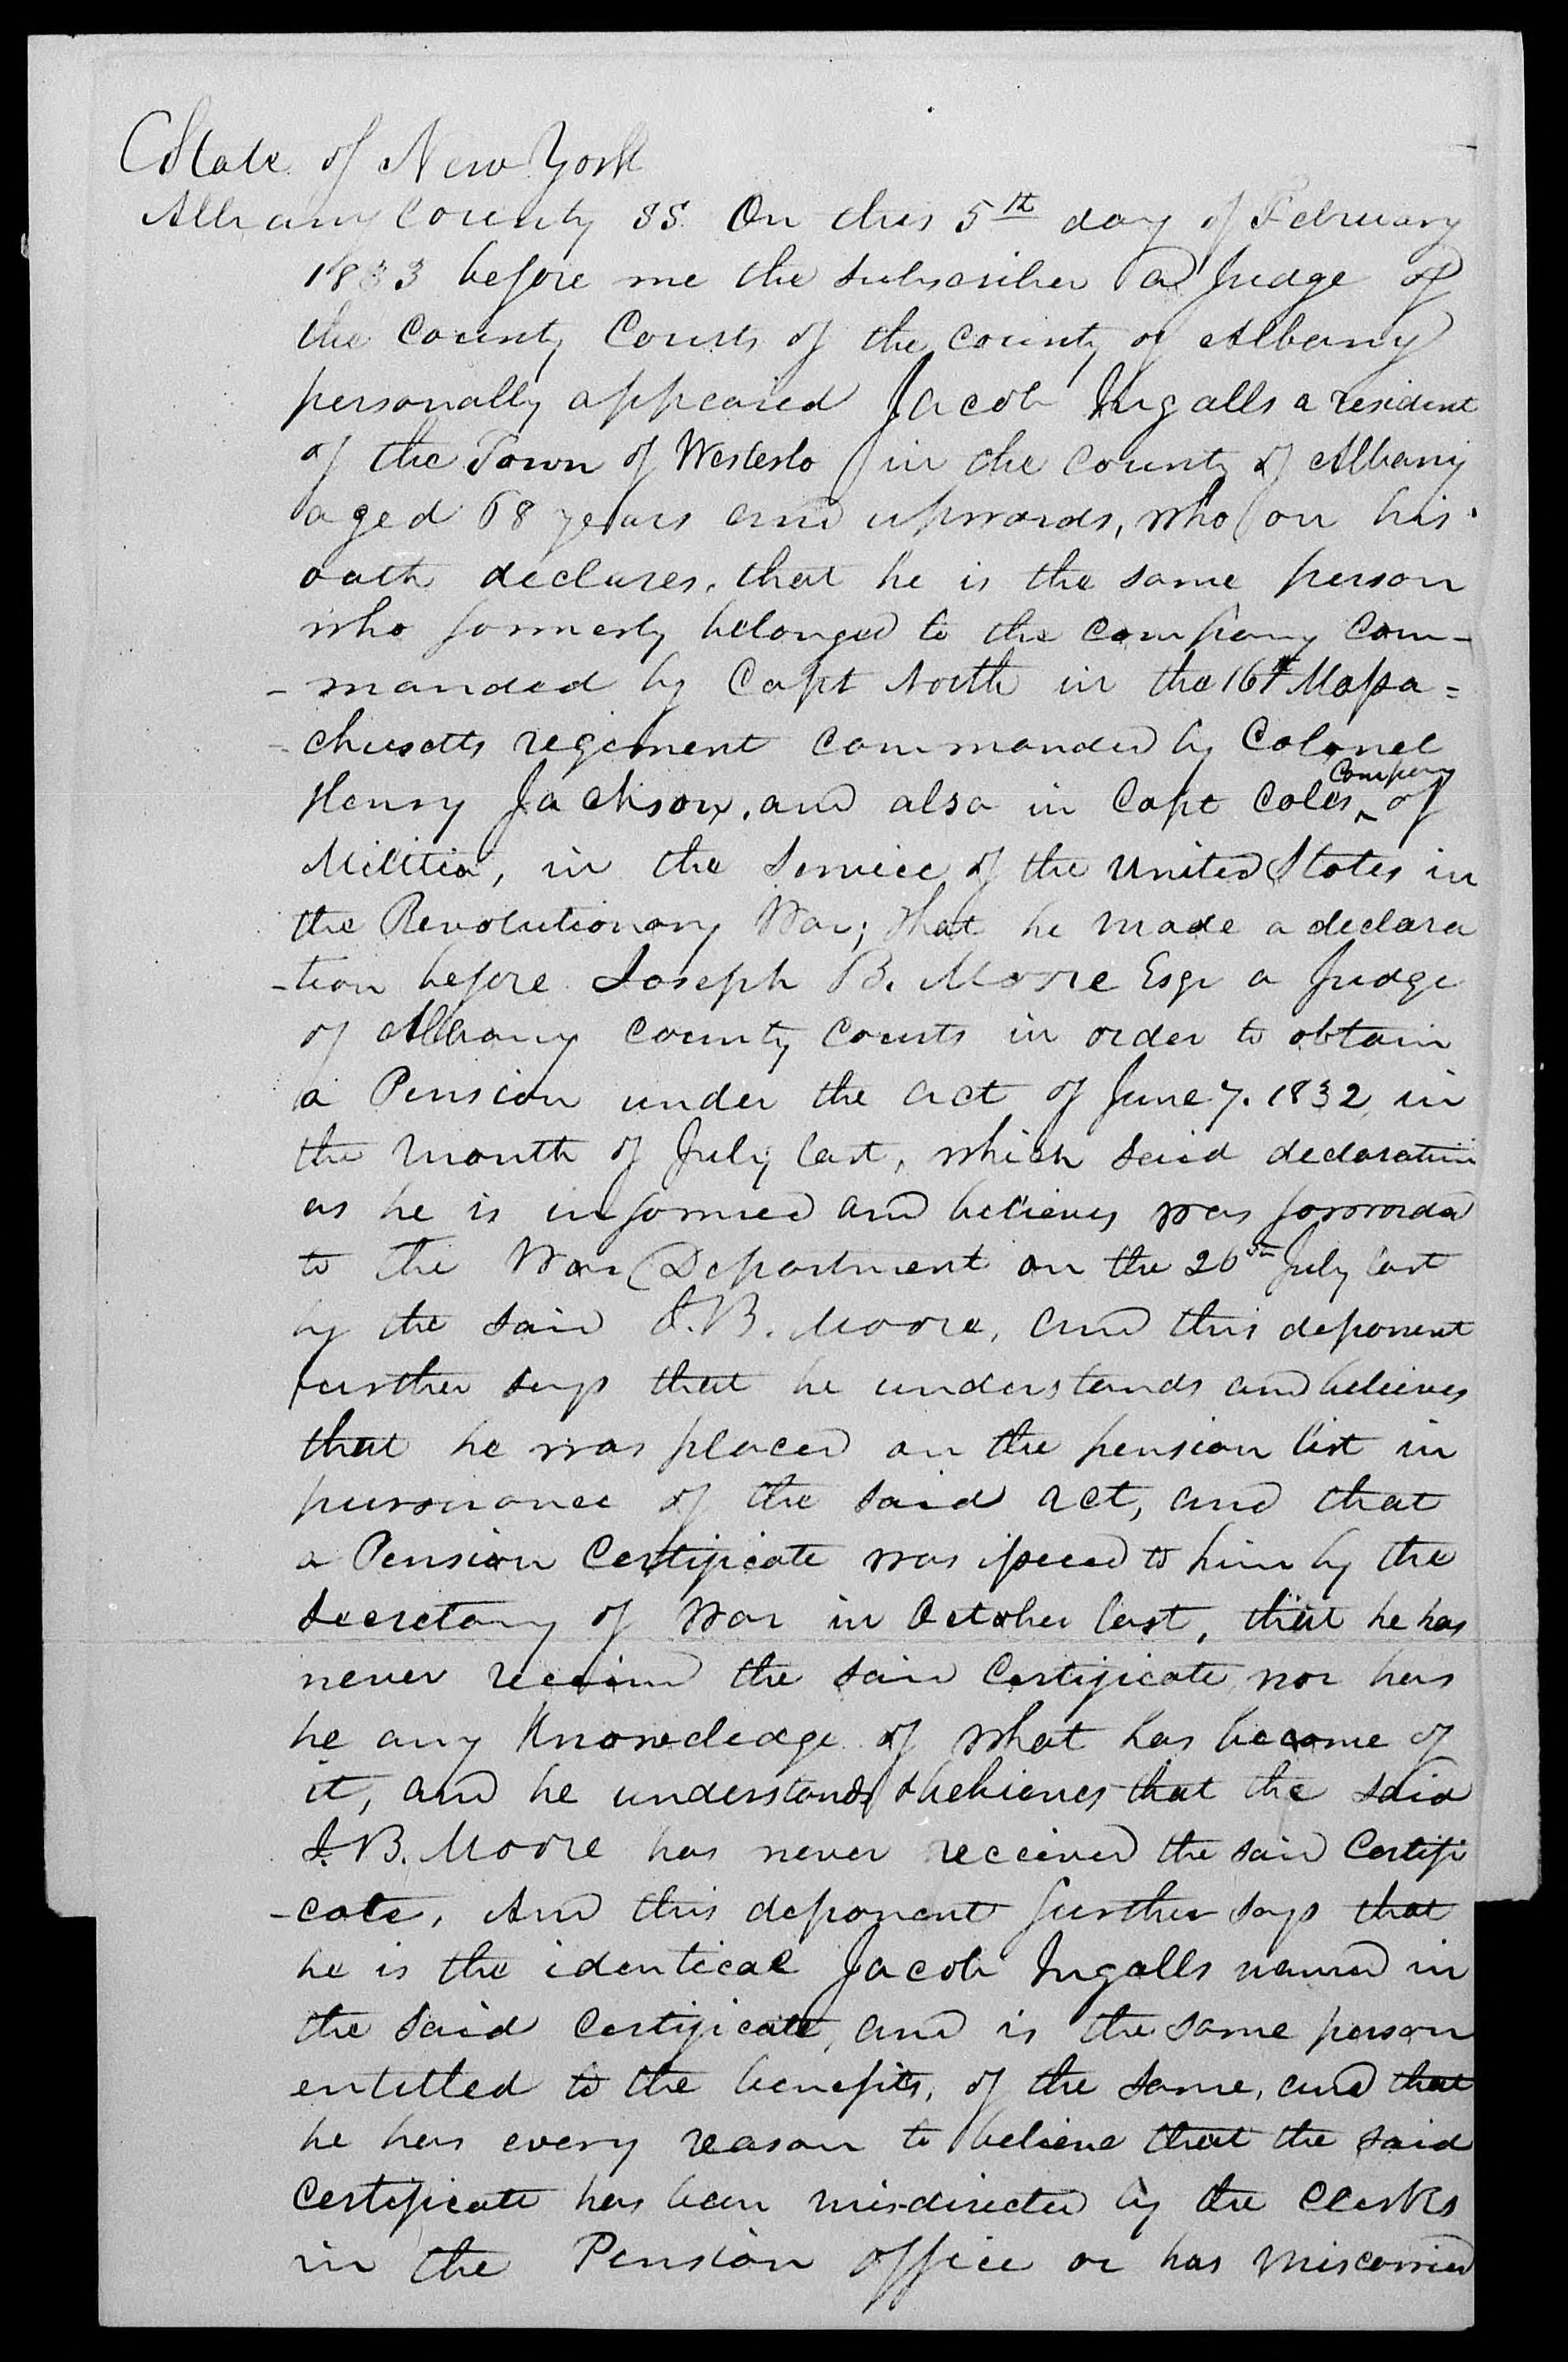 State of New York
Albany County SS. On this 5th day of February
1833 before me the subscriber a Judge of
the County Courts of the County of Albany
personally appeared Jacob Ingalls a resident
of the Town of Westerlo in the County of Albany
aged 68 years and upwards, who on his
oath declares, that he is the same person
who formerly belonged to the company com-
-manded by Capt North in the 16th Massa=
-chusetts regiment commanded by Colonel
Henry Jackson, and also in Capt Coles ^Company of
Militia, in the Service of the United States in
the Revolutionary War; that he made a declara
-tion before Joseph B. Moore Esqr a Judge
of Albany County Courts in order to obtain
a Pension under the act of June 7. 1832, in
the month of July last, which said declaration
as he is informed and believes was forwarded
to the War Department on the 26th July last
by the said J. B. Moore, and this deponent
further says that he understands and believes
that he was placed on the pension list in
pursuance of the said act, and that
a Pension Certificate was issued to him by the
Secretary of War in October last, that he has
never received the said Certificate, nor has
he any knowledge of what has become of
it, and he understands & believes that the said
J. B. Moore has never received the said Certifi
-cate, And this deponent further says that
he is the identical Jacob Ingalls named in
the said certificate, and is the same person
entitled to the benefits, of the same, and that
he has every reason to believe that the said
Certificate has been misdirected by the Clerks
in the Pension office or has miscarried